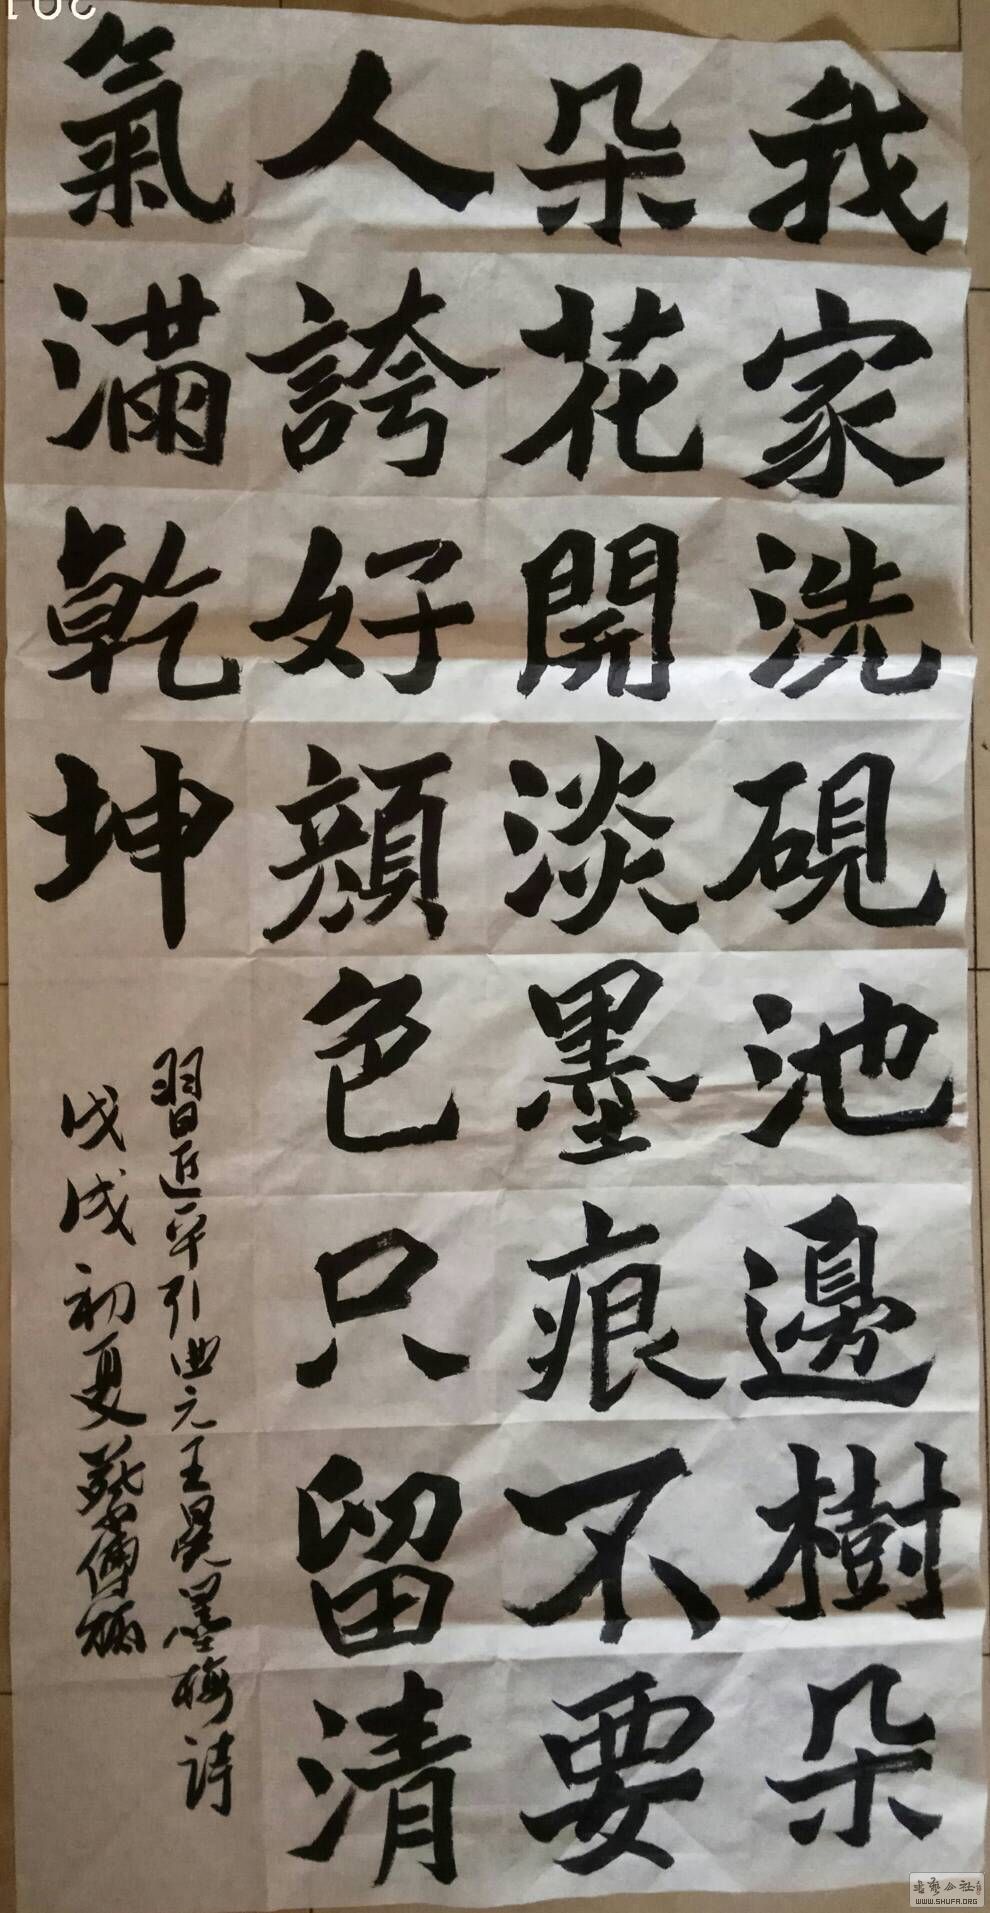 我家洗硯池邊樹朵
朵花開淡墨痕不要
人誇好顏色只留清
氣滿乾坤
習近平引典元王冕墨梅詩
戊戌初夏
书艺公社
WWW.SHUFA.ORG